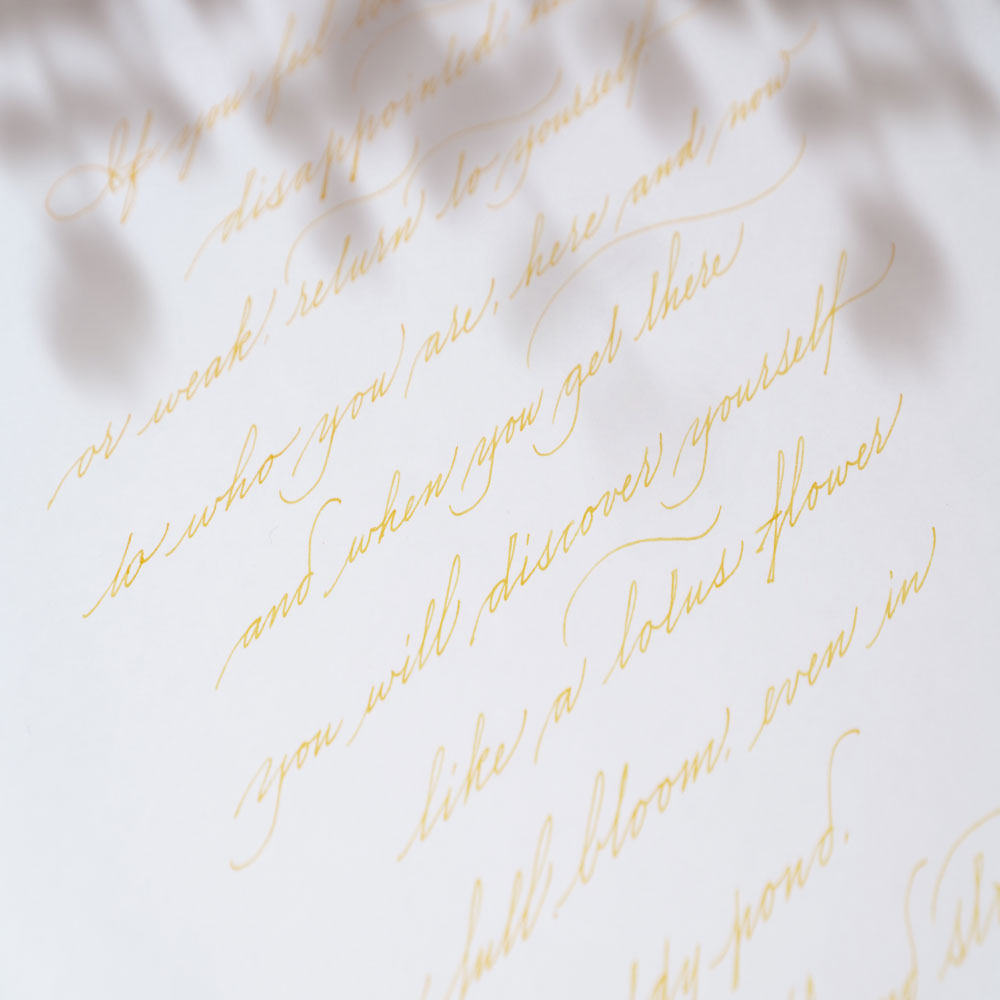 If you feel
disappointed,
or weak, return to yourself
to who you are, here and now
and when you get there
you will discover yourself
like a lotus flower
full bloom, even in
pond.